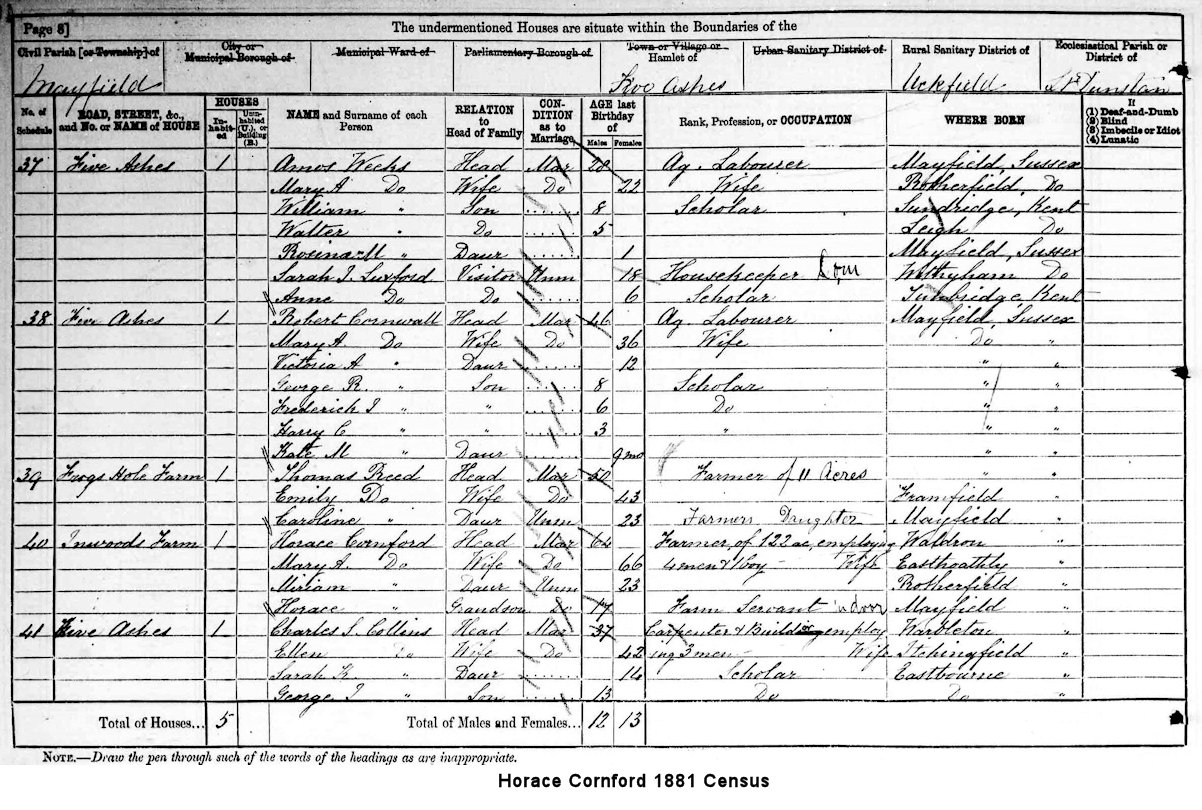 Page 8] The undermentioned Houses are situate within the Boundaries of the
Civil Parish [or Township] of City or Municipal Borough of Municipal Ward of Parliamentary Borough of Town or Village or Hamlet of Urban Sanitary District of Rural Sanitary District of Ecclesiastical Parish or District of
Mayfield Five Ashes Uckfield St Dunstan
No. of Schedule ROAD, STREET, &c., and No. or NAME of HOUSE HOUSES Inhabited Uninhabited (U.), or Building (B.) NAME and Surname of each Person RELATION to Head of Family CONDITION as to Marriage AGE last Birthday of Males Females Rank, Profession, or OCCUPATION WHERE BORN If (1) Deaf-and-Dumb (2) Blind (3) Imbecile or Idiot (4) Lunatic
37 Five Ashes 1 Amos Weeks Head Mar 28 Ag. Labourer Mayfield, Sussex
Mary A Do Wife Do 22 Wife Rotherfield, Do
William " Son 8 Scholar Sundridge, Kent
Walter " Do 5 Leigh Do
Rosina M " Daur 1 Mayfield, Sussex
Sarah J. Luxford Visitor Unm 18 Housekeeper Dom Withyham Do
Anne Do Do 6 Scholar Tunbridge, Kent
38 Five Ashes 1 Robert Cornwall Head Mar 46 Ag. Labourer Mayfield, Sussex
Mary A. Do Wife Do 36 Wife Do "
Victoria A " Daur 12 " "
George R. " Son 8 Scholar " "
Frederick J " " 6 Do " "
Harry C " " 3 " " "
Kate M " Daur 9 mo " "
39 Frogs Hole Farm 1 Thomas Reed Head Mar 50 Farmer of 11 Acres " "
Emily Do Wife Do 43 Framfield "
Caroline " Daur Unm 23 Farmers Daughter Mayfield "
40 Inwoods Farm 1 Horace Cornford Head Mar 64 Farmer of 122 ac, employing Waldron "
Mary A. Do Wife Do 66 4 men & 1 boy - Wife Easthoathly "
Miriam " Daur Unm 23 Rotherfield "
Horace " Grandson Do 17 Farm Servant indoor Mayfield "
41 Five Ashes 1 Charles S. Collins Head Mar 37 Carpenter & Builder employ Warbleton "
Ellen Do Wife Do 42 ing 3 men - Wife Itchingfield "
Sarah K " Daur 14 Scholar Eastbourne "
George J " Son 13 Do Do "
Total of Houses... 5 Total of Males and Females... 12 13
NOTE.—Draw the pen through such of the words of the headings as are inappropriate.
Horace Cornford 1881 Census